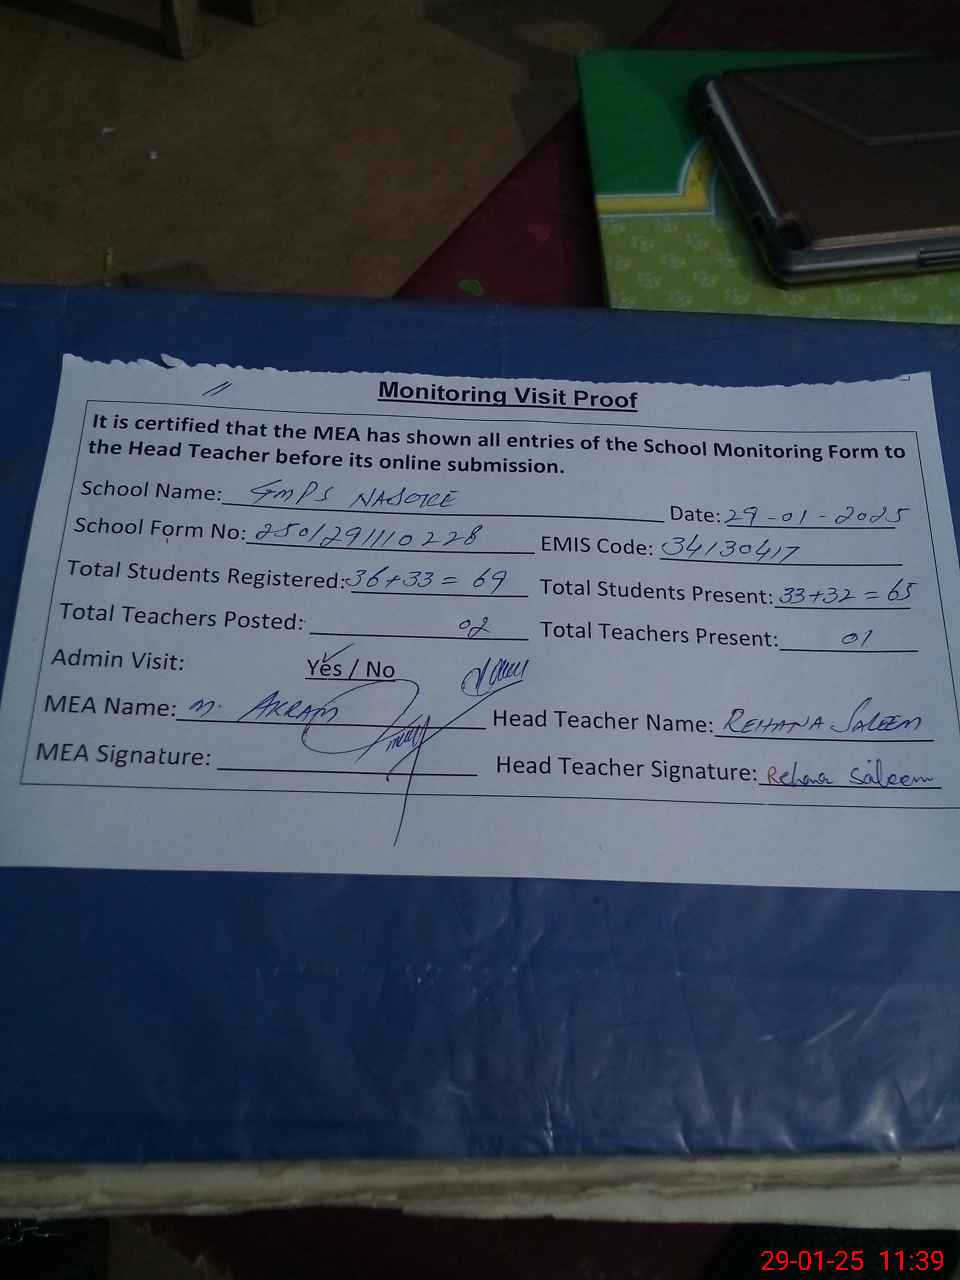 Monitoring Visit Proof
It is certified that the MEA has shown all entries of the School Monitoring Form to
the Head Teacher before its online submission.
School Name: GMPS NASOKE Date: 29-01-2025
School Form No: 250129111 0228 EMIS Code: 34130417
Total Students Registered: 36+33 = 69 Total Students Present: 33+32 = 65
Total Teachers Posted: 02 Total Teachers Present: 01
Admin Visit: Yes / No
MEA Name: M. AKRAM Head Teacher Name: REHANA SALEEM
MEA Signature: Head Teacher Signature: Rehana Saleem
29-01-25 11:39